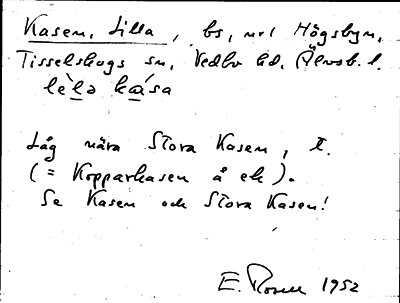 Kasen, Lilla, bs, nr 1 Högsbyn,
Tisselskogs sn, Vedbo hd, Älvsb. l.
lè̱lə ká̱sa
Låg nära Stora Kasen, t.
(= Kopparkasen å ek).
Se Kasen och Stora Kasen!
E. Rosell 1952